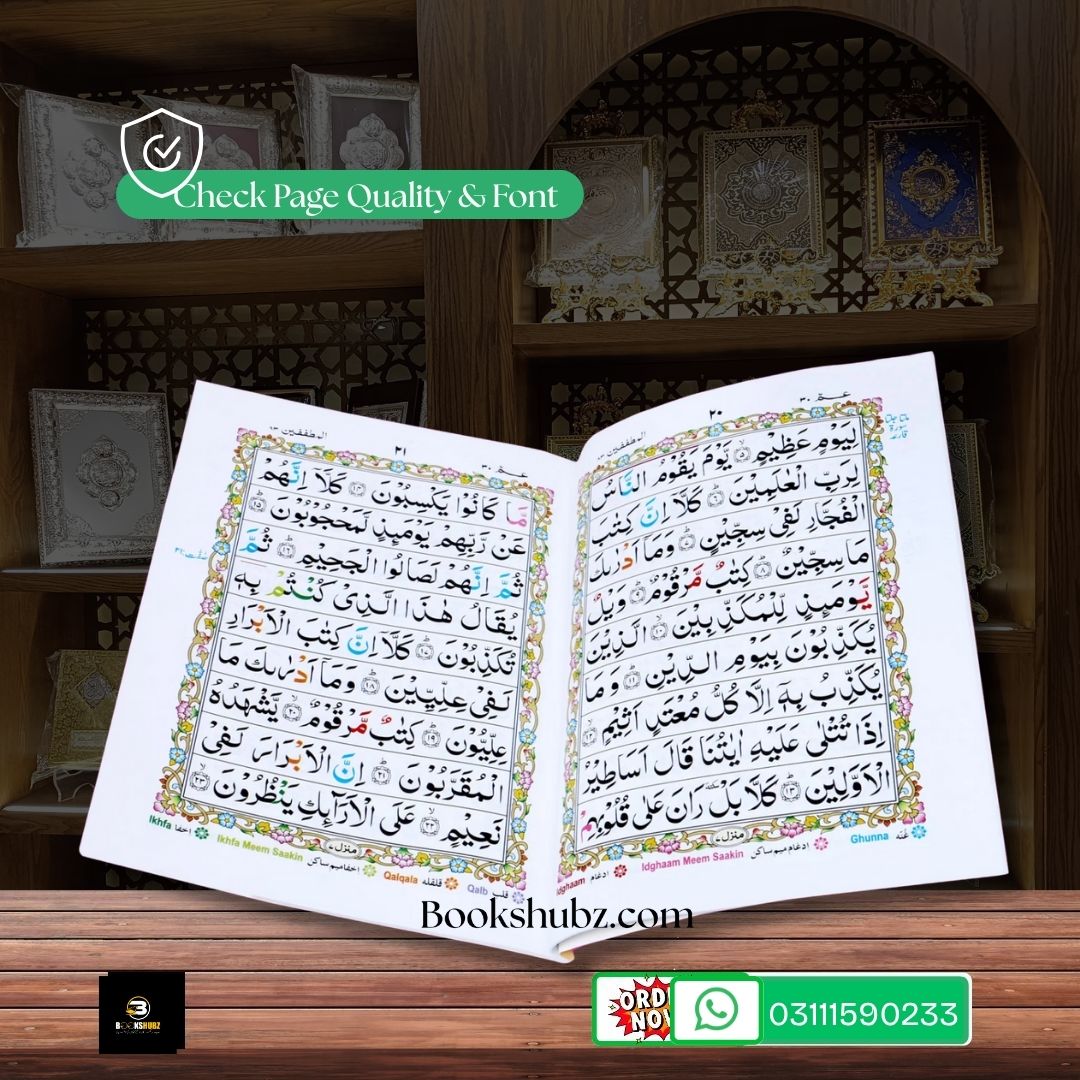 Check Page Quality & Font
عـمّ ٣٠
٢٠
المطففين ٨٣
لِيَوْمٍ عَظِيْمٍ ۙ ٥ يَّوْمَ يَقُوْمُ النَّاسُ
لِرَبِّ الْعٰلَمِيْنَ ؕ ٦ كَلَّاۤ اِنَّ كِتٰبَ
الْفُجَّارِ لَفِىْ سِجِّيْنٍ ؕ ٧ وَمَاۤ اَدْرٰىكَ
مَا سِجِّيْنٌ ؕ ٨ كِتٰبٌ مَّرْقُوْمٌ ؕ ٩ وَيْلٌ
يَّوْمَىِٕذٍ لِّلْمُكَذِّبِيْنَ ۙ ١٠ الَّذِيْنَ
يُكَذِّبُوْنَ بِيَوْمِ الدِّيْنِ ؕ ١١ وَمَا
يُكَذِّبُ بِهٖۤ اِلَّا كُلُّ مُعْتَدٍ اَثِيْمٍ ۙ ١٢
اِذَا تُتْلٰى عَلَيْهِ اٰيٰتُنَا قَالَ اَسَاطِيْرُ
الْاَوَّلِيْنَ ؕ ١٣ كَلَّا بَلْ رَانَ عَلٰى قُلُوْبِهِمْ
منزل ٧
Ghunna غُنّه
Idghaam Meem Saakin ادغام میم ساکن
Idghaam ادغام
عـمّ ٣٠
٢١
المطففين ٨٣
مَّا كَانُوْا يَكْسِبُوْنَ ١٤ كَلَّاۤ اِنَّهُمْ
عَنْ رَّبِّهِمْ يَوْمَىِٕذٍ لَّمَحْجُوْبُوْنَ ؕ ١٥
ثُمَّ اِنَّهُمْ لَصَالُوا الْجَحِيْمِ ؕ ١٦ ثُمَّ
يُقَالُ هٰذَا الَّذِىْ كُنْتُمْ بِهٖ
تُكَذِّبُوْنَ ؕ ١٧ كَلَّاۤ اِنَّ كِتٰبَ الْاَبْرَارِ
لَفِىْ عِلِّيِّيْنَ ؕ ١٨ وَمَاۤ اَدْرٰىكَ مَا
عِلِّيُّوْنَ ؕ ١٩ كِتٰبٌ مَّرْقُوْمٌ ۙ ٢٠ يَّشْهَدُهُ
الْمُقَرَّبُوْنَ ؕ ٢١ اِنَّ الْاَبْرَارَ لَفِىْ
نَعِيْمٍ ۙ ٢٢ عَلَى الْاَرَآىِٕكِ يَنْظُرُوْنَ ۙ ٢٣
منزل ٧
Ikhfa اخفا
Ikhfa Meem Saakin اخفا میم ساکن
Qalqala قلقله
Qalb قلب
Bookshubz.com
BOOKSHUBZ
ORD
NOW
03111590233